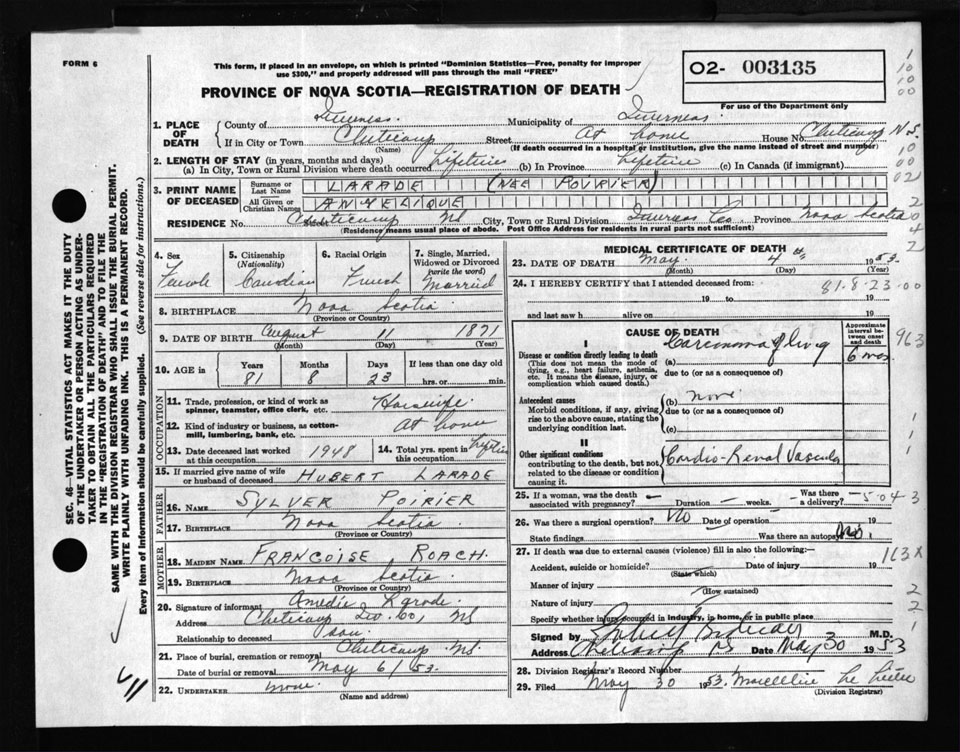 FORM 6
This form, if placed in an envelope, on which is printed "Dominion Statistics—Free, penalty for improper
use $300," and properly addressed will pass through the mail "FREE"
O2- 003135
For use of the Department only
PROVINCE OF NOVA SCOTIA—REGISTRATION OF DEATH
1. PLACE OF DEATH
County of Inverness. Municipality of Inverness.
If in City or Town Cheticamp Street At home House No. Cheticamp N.S.
(Name) (If death occurred in a hospital or institution, give the name instead of street and number)
2. LENGTH OF STAY (in years, months and days)
(a) In City, Town or Rural Division where death occurred Lifetime (b) In Province Lifetime (c) In Canada (if immigrant)
3. PRINT NAME OF DECEASED
Surname or Last Name LARADE (NEE POIRIER)
All Given or Christian Names ANGELIQUE
RESIDENCE No. Cheticamp Street NS City, Town or Rural Division Inverness Co. Province Nova Scotia
(Residency means usual place of abode. Post Office Address for residents in rural parts not sufficient)
4. Sex Female
5. Citizenship (Nationality) Canadian
6. Racial Origin French
7. Single, Married, Widowed or Divorced (write the word) Married
8. BIRTHPLACE Nova Scotia
(Province or Country)
9. DATE OF BIRTH August 11 1871
(Month) (Day) (Year)
10. AGE in Years Months Days If less than one day old
81 8 23 hrs. or min.
OCCUPATION
11. Trade, profession, or kind of work as
spinner, teamster, office clerk, etc. Housewife.
12. Kind of industry or business, as cotton-
mill, lumbering, bank, etc. At home
13. Date deceased last worked
at this occupation 1948
14. Total yrs. spent in
this occupation Lifetime
15. If married give name of wife
or husband of deceased HUBERT LARADE
FATHER
16. NAME SYLVER POIRIER
17. BIRTHPLACE Nova Scotia
(Province or Country)
MOTHER
18. MAIDEN NAME FRANCOISE ROACH.
19. BIRTHPLACE Nova Scotia.
(Province or Country)
20. Signature of informant Amedie Larade.
Address Cheticamp Inv. Co., NS
Relationship to deceased son.
21. Place of burial, cremation or removal Cheticamp NS.
Date of burial or removal May 6/53.
22. UNDERTAKER none.
(Name and address)
MEDICAL CERTIFICATE OF DEATH
23. DATE OF DEATH May. 4th 1953.
(Month) (Day) (Year)
24. I HEREBY CERTIFY that I attended deceased from: 81.8-23-00
19 to 19
and last saw h alive on 19
CAUSE OF DEATH
Approximate interval between onset and death
I
Disease or condition directly leading to death
(This does not mean the mode of
dying, e.g., heart failure, asthenia,
etc. It means the disease, injury, or
complication which caused death.)
(a) Carcinoma of lung 6 mos.
due to (or as a consequence of)
Antecedent causes
Morbid conditions, if any, giving
rise to the above cause, stating the
underlying condition last.
(b) None.
due to (or as a consequence of)
(c)
II
Other significant conditions
contributing to the death, but not
related to the disease or condition
causing it.
Cardio-Renal Vascular
25. If a woman, was the death
associated with pregnancy? — Duration — weeks. Was there
a delivery? —
5043
26. Was there a surgical operation? No Date of operation 19
State findings Was there an autopsy No.
27. If death was due to external causes (violence) fill in also the following:—
Accident, suicide or homicide? Date of injury 19
(State which)
Manner of injury
(How sustained)
Nature of injury
Specify whether injury occurred in industry, in home, or in public place
Signed by M.D.
Address Cheticamp NS Date May 30 1953
28. Division Registrar's Record Number
29. Filed May 30 1953.
(Division Registrar)
963
163X
SEC. 46—VITAL STATISTICS ACT MAKES IT THE DUTY
OF THE UNDERTAKER OR PERSON ACTING AS UNDER-
TAKER TO OBTAIN ALL THE PARTICULARS REQUIRED
IN THE "REGISTRATION OF DEATH" AND TO FILE THE
SAME WITH THE DIVISION REGISTRAR WHO SHALL ISSUE THE BURIAL PERMIT.
WRITE PLAINLY WITH UNFADING INK. THIS IS A PERMANENT RECORD.
Every item of information should be carefully supplied. (See reverse side for instructions.)